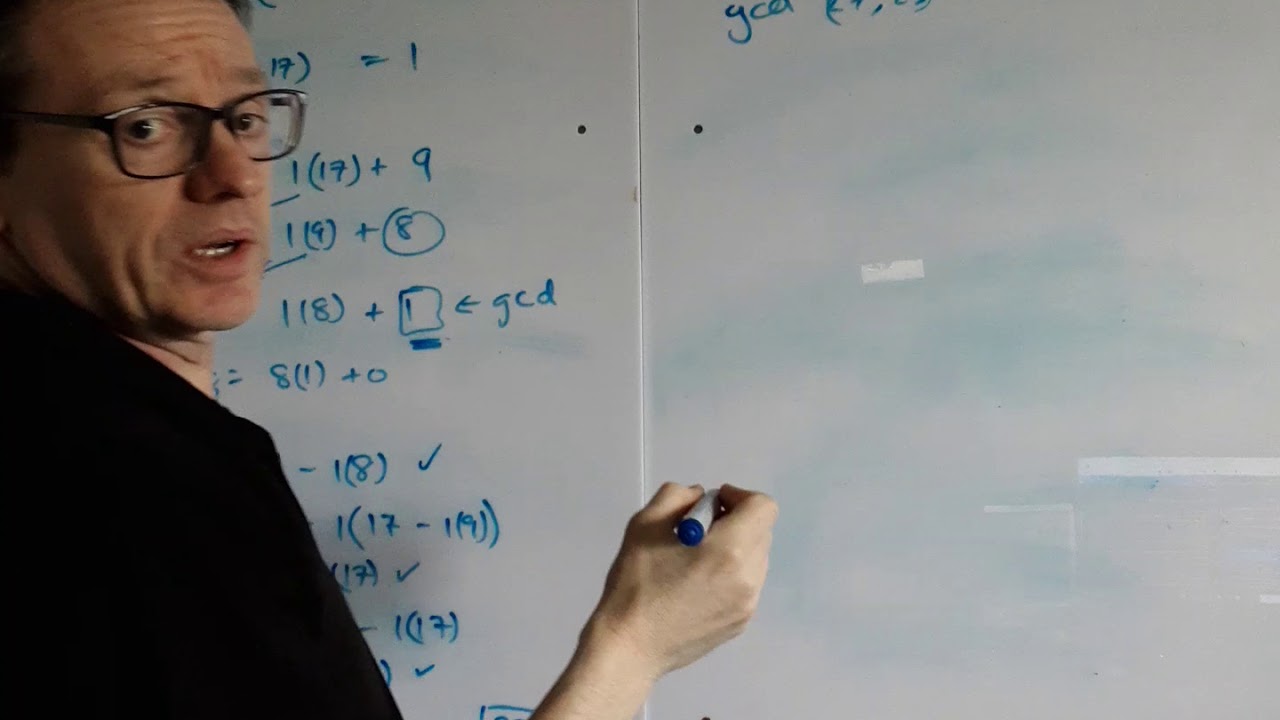 17) = 1
1(17) + 9
1(9) + 8
1(8) + 1 ← gcd
= 8(1) + 0
- 1(8) ✓
1(17 - 1(9))
(17) ✓
- 1(17)
) ✓
gcd